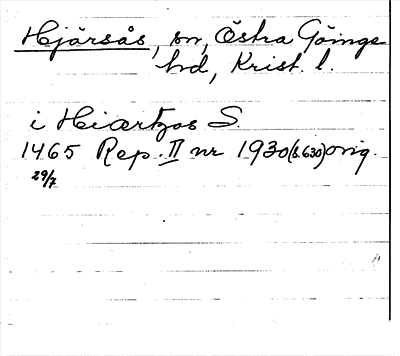 Hjärsås, sn, Östra Göinge
hd, Krist. l.
i Hiærtzos S.
1465 Rep. II nr 1930 (s. 630) orig.
29/7